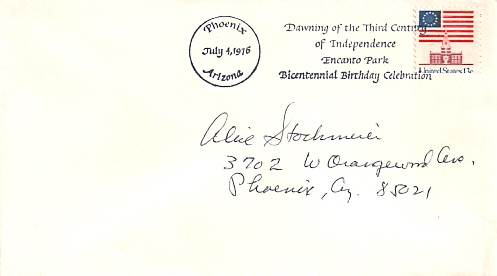 Phoenix
July 4, 1976
Arizona
Dawning of the Third Century
of Independence
Encanto Park
Bicentennial Birthday Celebration
United States 13c
Alice Stockmeier
3702 W Orangewood Ave.
Phoenix, Az. 85021